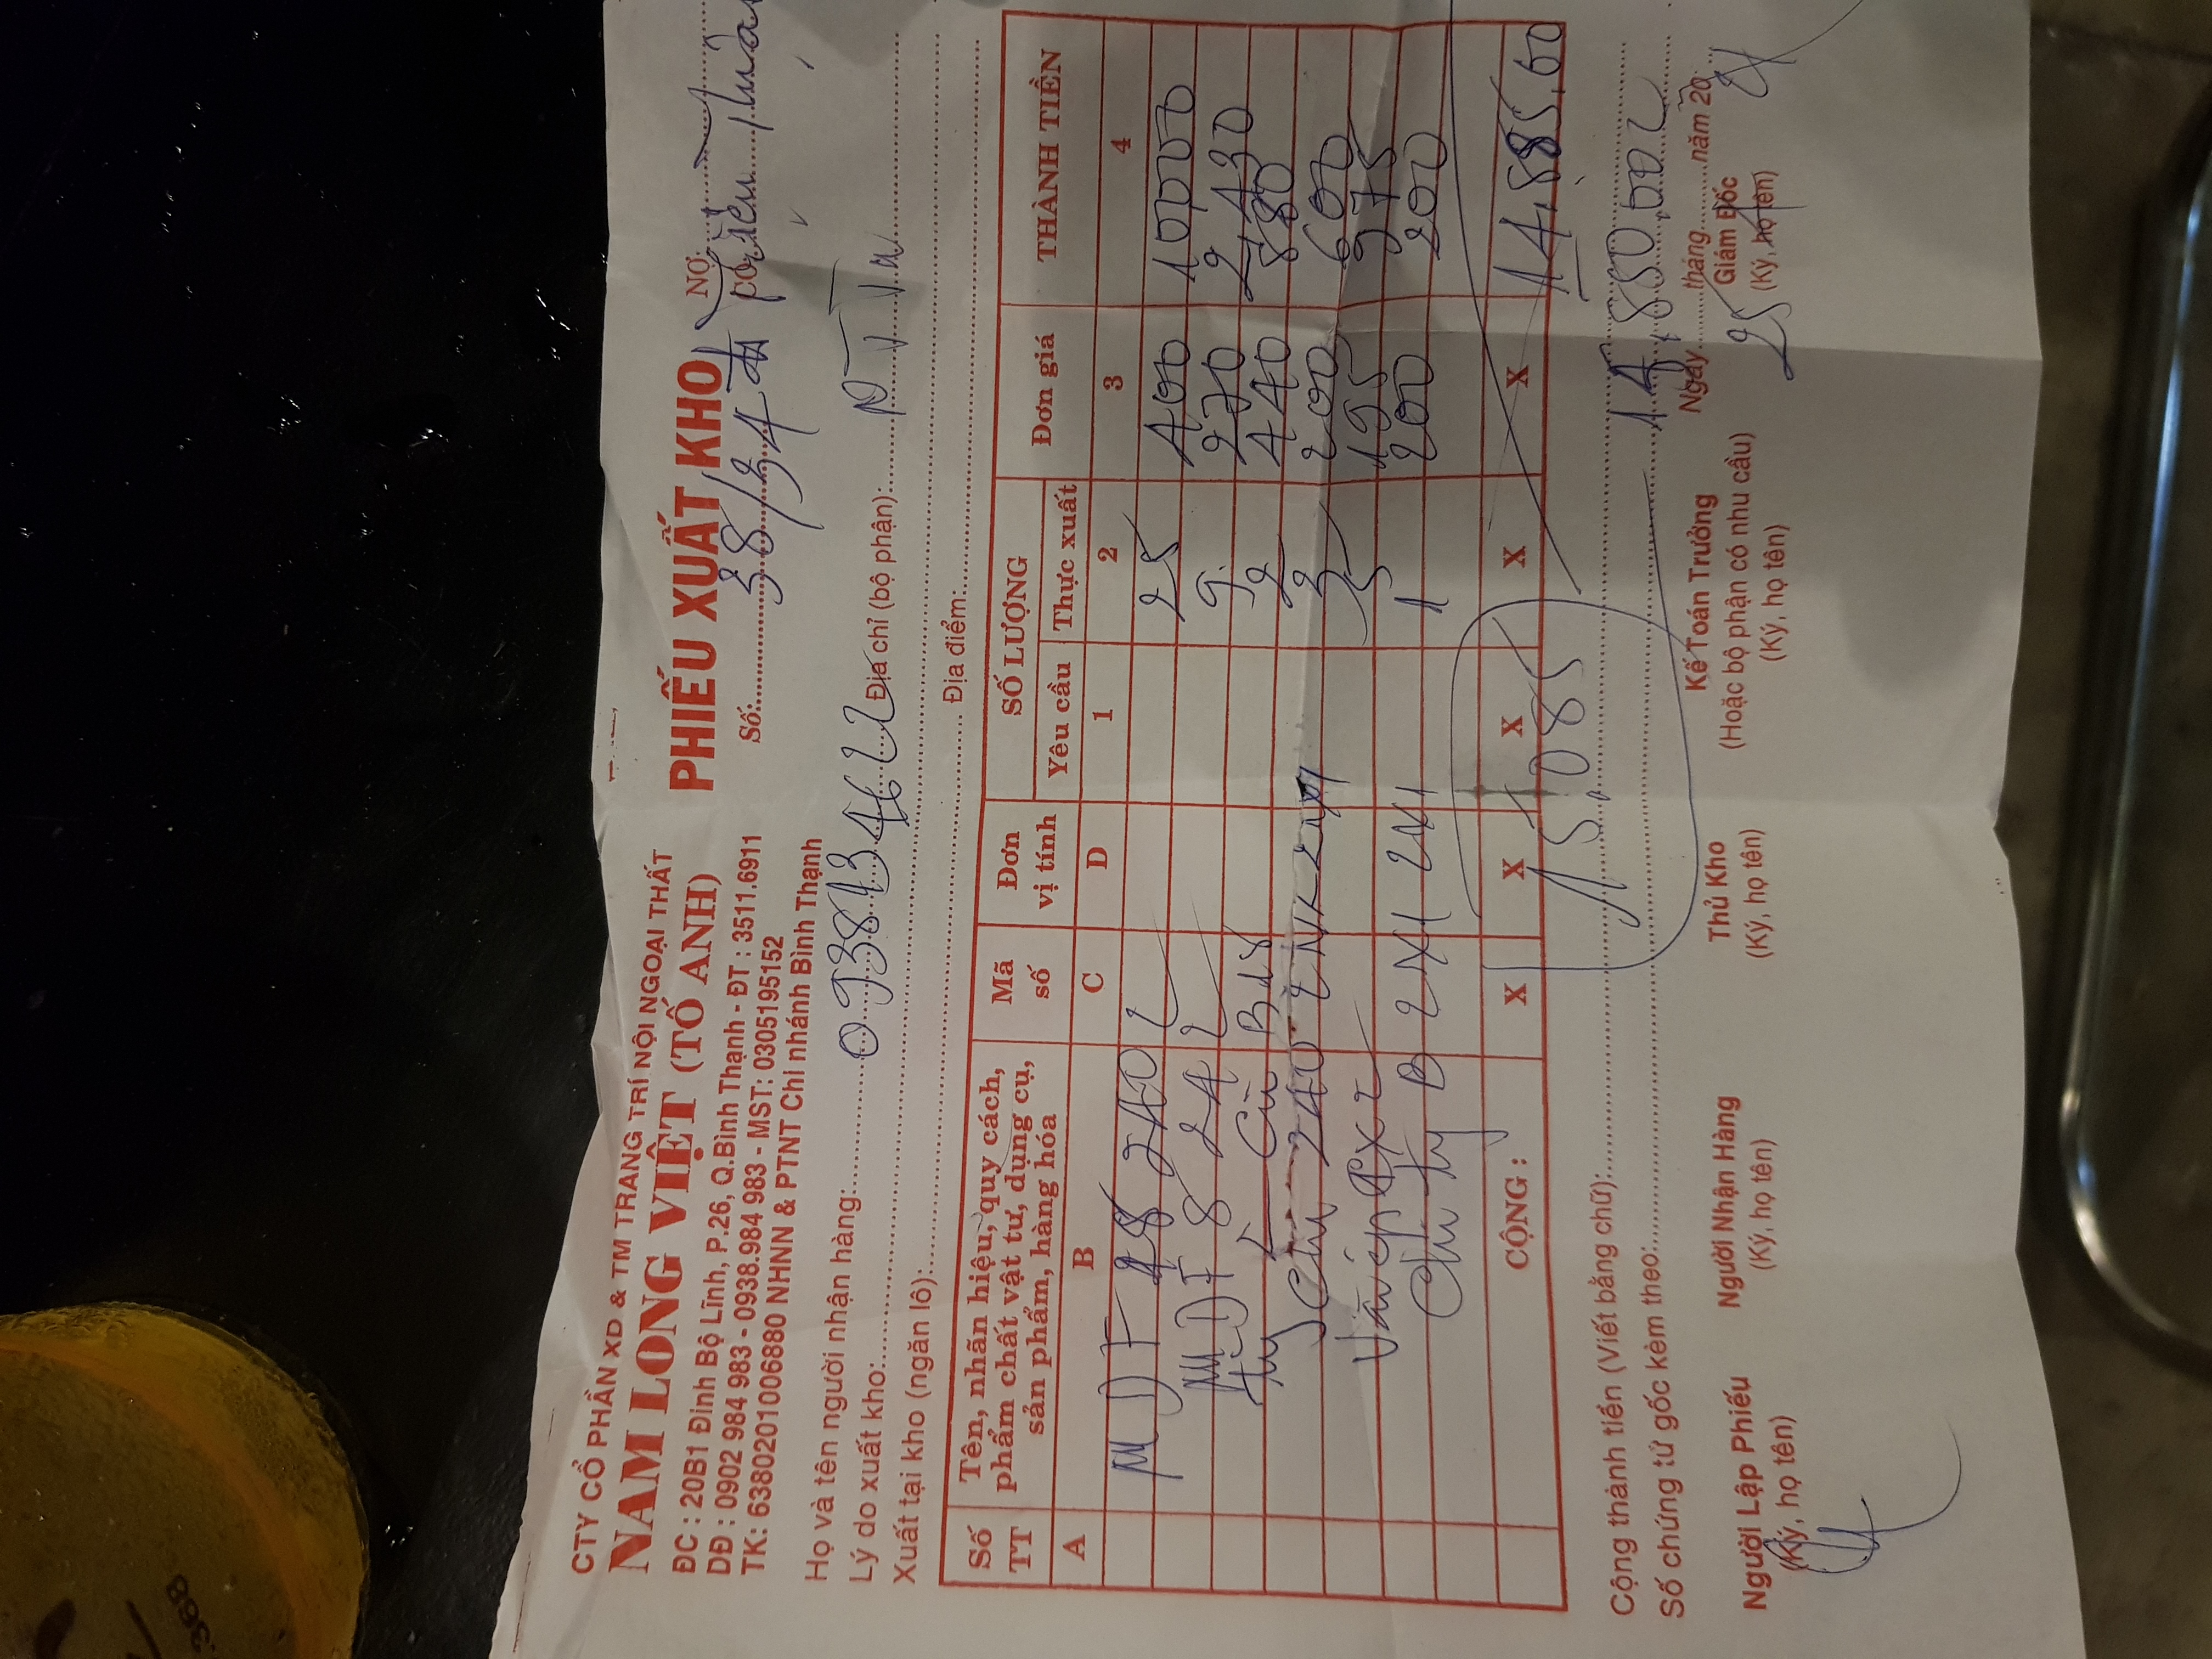 CTY CỔ PHẦN XD & TM TRANG TRÍ NỘI NGOẠI THẤT
NAM LONG VIỆT (TỐ ANH)
ĐC : 20B1 Đinh Bộ Lĩnh, P.26, Q.Bình Thạnh - ĐT : 3511.6911
DĐ : 0902 984 983 - 0938.984 983 - MST: 0305195152
TK: 6380201006880 NHNN & PTNT Chi nhánh Bình Thạnh
PHIẾU XUẤT KHO
Số: 38/34
NỢ:
Họ và tên người nhận hàng:
Lý do xuất kho: Địa chỉ (bộ phận):
Xuất tại kho (ngăn lô): Địa điểm:
Số TT
Tên, nhãn hiệu, quy cách, phẩm chất vật tư, dụng cụ, sản phẩm, hàng hóa
Mã số
Đơn vị tính
SỐ LƯỢNG
Yêu cầu
Thực xuất
Đơn giá
THÀNH TIỀN
A B C D 1 2 3 4
MDF 18 2 25 400 10000
MDF 8 2 9 270 2430
2 440 880
240 3 200 600
5 195 975
Chỉ B 2M1 2M1 1 200 200
CỘNG : X X X X X 14.885.00
15.085
Cộng thành tiền (Viết bằng chữ): 14.880.00
Số chứng từ gốc kèm theo:
Ngày tháng năm 20
25
Người Lập Phiếu
(Ký, họ tên)
Người Nhận Hàng
(Ký, họ tên)
Thủ Kho
(Ký, họ tên)
Kế Toán Trưởng
(Hoặc bộ phận có nhu cầu)
(Ký, họ tên)
Giám Đốc
(Ký, họ tên)
368